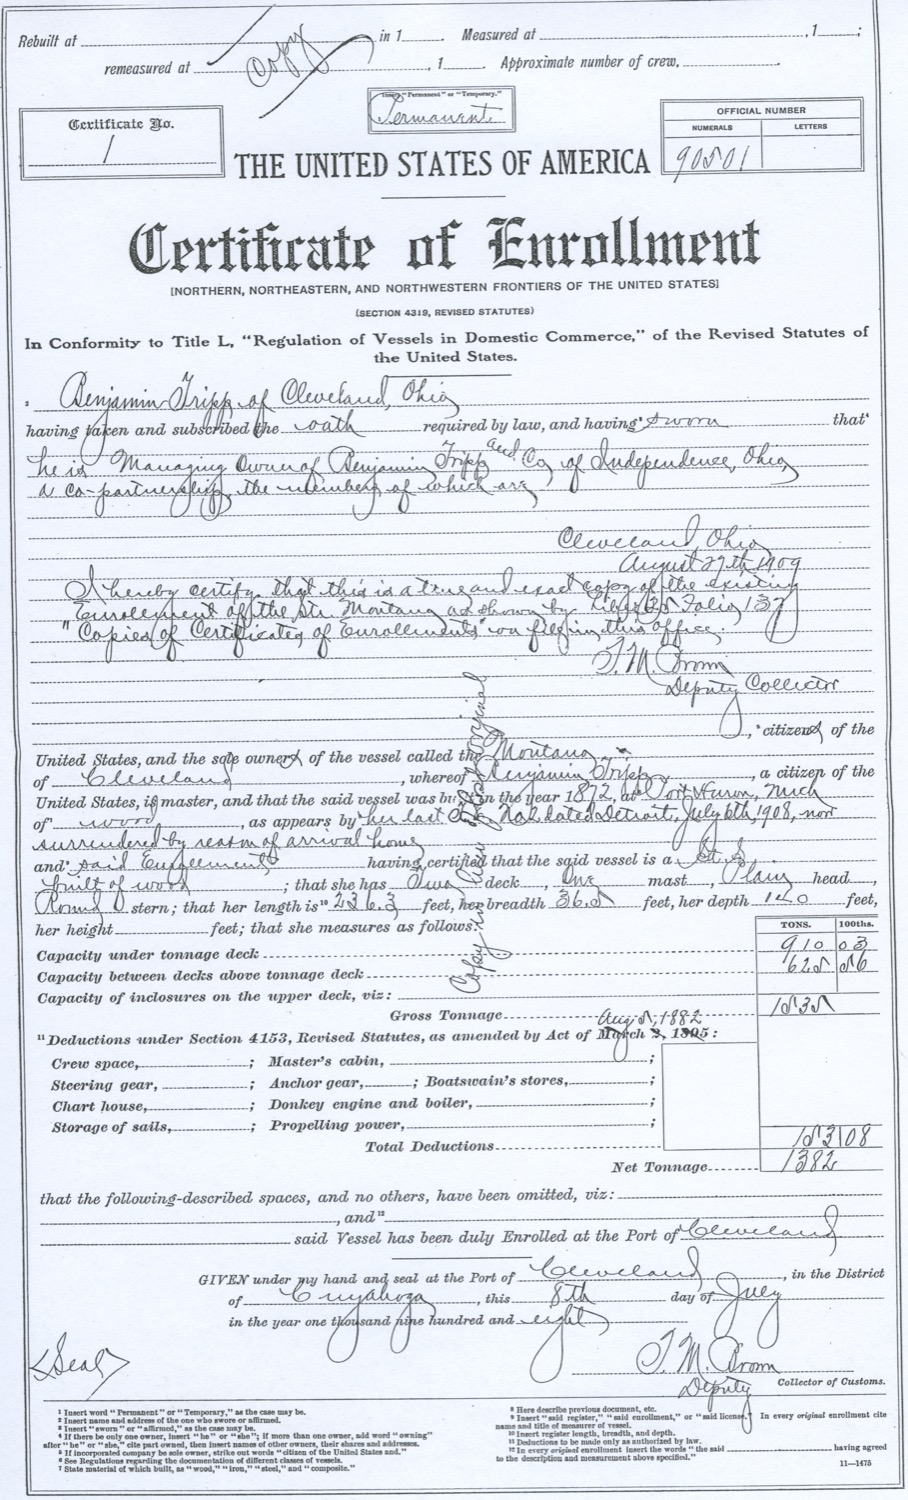 Rebuilt at in 1 . Measured at , 1 ;
remeasured at , 1 . Approximate number of crew, .
Copy
Certificate No.
1
Insert "Permanent" or "Temporary."
Permanent
OFFICIAL NUMBER
NUMERALS LETTERS
90501
THE UNITED STATES OF AMERICA
Certificate of Enrollment
[NORTHERN, NORTHEASTERN, AND NORTHWESTERN FRONTIERS OF THE UNITED STATES]
(SECTION 4319, REVISED STATUTES)
In Conformity to Title L, "Regulation of Vessels in Domestic Commerce," of the Revised Statutes of
the United States.
2 Benjamin Tripp of Cleveland, Ohio
having taken and subscribed the oath required by law, and having 3 sworn that 4
he is Managing Owner of Benjamin Tripp and Co of Independence, Ohio
a co-partnership the members of which are
Cleveland, Ohio
August 27th, 1909
I hereby certify that this is a true and exact copy of the existing
Enrollment of the Str. Montana as shown by Folio 137
"Copies of Certificates of Enrollments" on file in this office.
T. M. Brown
Deputy Collector
, 5 citizens of the
United States, and the sole owners of the vessel called the Montana
of Cleveland , whereof Benjamin Tripp , a citizen of the
United States, is master, and that the said vessel was built in the year 1872, at Port Huron, Mich
of 7 wood , as appears by 8 her last No 2 dated Detroit, July 6th, 1908, now
surrendered by reason of arrival home
and 9 said Enrollment having certified that the said vessel is a St. S.
built of wood ; that she has Two deck , One mast , Plain head ,
Round stern; that her length is 10 236.3 feet, her breadth 36.5 feet, her depth 14.0 feet,
her height feet; that she measures as follows:
TONS. 100ths.
Capacity under tonnage deck 910 03
Capacity between decks above tonnage deck 625 56
Capacity of inclosures on the upper deck, viz:
Gross Tonnage 1535
Aug 5, 1882
11 Deductions under Section 4153, Revised Statutes, as amended by Act of March 2, 1895:
Crew space, ; Master's cabin, ;
Steering gear, ; Anchor gear, ; Boatswain's stores, ;
Chart house, ; Donkey engine and boiler, ;
Storage of sails, ; Propelling power, ;
Total Deductions 153 08
Net Tonnage 1382
that the following-described spaces, and no others, have been omitted, viz:
, and 12
said Vessel has been duly Enrolled at the Port of Cleveland
GIVEN under my hand and seal at the Port of Cleveland , in the District
of Cuyahoga , this 8th day of July
in the year one thousand nine hundred and eight
<Seal>
T. M. Brown
Deputy Collector of Customs.
1 Insert word "Permanent" or "Temporary," as the case may be.
2 Insert name and address of the one who swore or affirmed.
3 Insert "sworn" or "affirmed," as the case may be.
4 If there be only one owner, insert "he" or "she"; if more than one owner, add word "owning"
after "he" or "she," cite part owned, then insert names of other owners, their shares and addresses.
5 If incorporated company be sole owner, strike out words "citizen of the United States and."
6 See Regulations regarding the documentation of different classes of vessels.
7 State material of which built, as "wood," "iron," "steel," and "composite."
8 Here describe previous document, etc.
9 Insert "said register," "said enrollment," or "said license," In every original enrollment cite
name and title of measurer of vessel.
10 Insert register length, breadth, and depth.
11 Deductions to be made only as authorized by law.
12 In every original enrollment insert the words "the said having agreed
to the description and measurement above specified."
11—1475